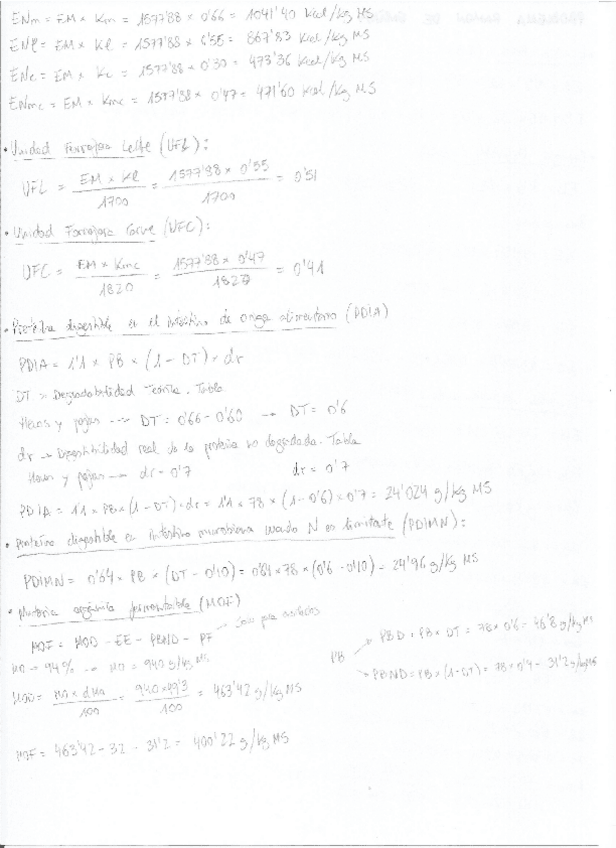 ENm = EM x Km = 1577'88 x 0'66 = 1041'40 Kcal/kg MS
ENl = EM x Kl = 1577'88 x 0'55 = 867'83 Kcal/kg MS
ENc = EM x Kc = 1577'88 x 0'30 = 473'36 Kcal/kg MS
ENmc = EM x Kmc = 1577'88 x 0'47 = 471'60 Kcal/kg MS
• Unidad Forrajera Leche (UFL):
UFL = EM x Kl / 1700 = 1577'88 x 0'55 / 1700 = 0'51
• Unidad Forrajera Carne (UFC):
UFC = EM x Kmc / 1820 = 1577'88 x 0'47 / 1820 = 0'41
• Proteína digestible en el intestino de origen alimentario (PDIA)
PDIA = 1'1 x PB x (1 - DT) x dr
DT = Degradabilidad Teórica. Tabla
Henos y pajas --- DT = 0'66 - 0'60 → DT = 0'6
dr → Digestibilidad real de la proteína no degradada. Tabla
Henos y pajas --- dr = 0'7 dr = 0'7
PDIA = 1'1 x PB x (1 - DT) x dr = 1'1 x 78 x (1 - 0'6) x 0'7 = 24'024 g/kg MS
• Proteína digestible en intestino microbiana cuando N es limitante (PDIMN):
PDIMN = 0'64 x PB x (DT - 0'10) = 0'64 x 78 x (0'6 - 0'10) = 24'96 g/kg MS
• Materia orgánica fermentable (MOF)
MOF = MOD - EE - PBND - PF → Solo para
MO → 94% → MO = 940 g/kg MS
MOD = MO x dMO / 100 = 940 x 49'3 / 100 = 463'42 g/kg MS
PB
PBD = PB x DT = 78 x 0'6 = 46'8 g/kg MS
PBND = PB x (1 - DT) = 78 x 0'4 = 31'2 g/kg MS
MOF = 463'42 - 32 - 31'2 = 400'22 g/kg MS